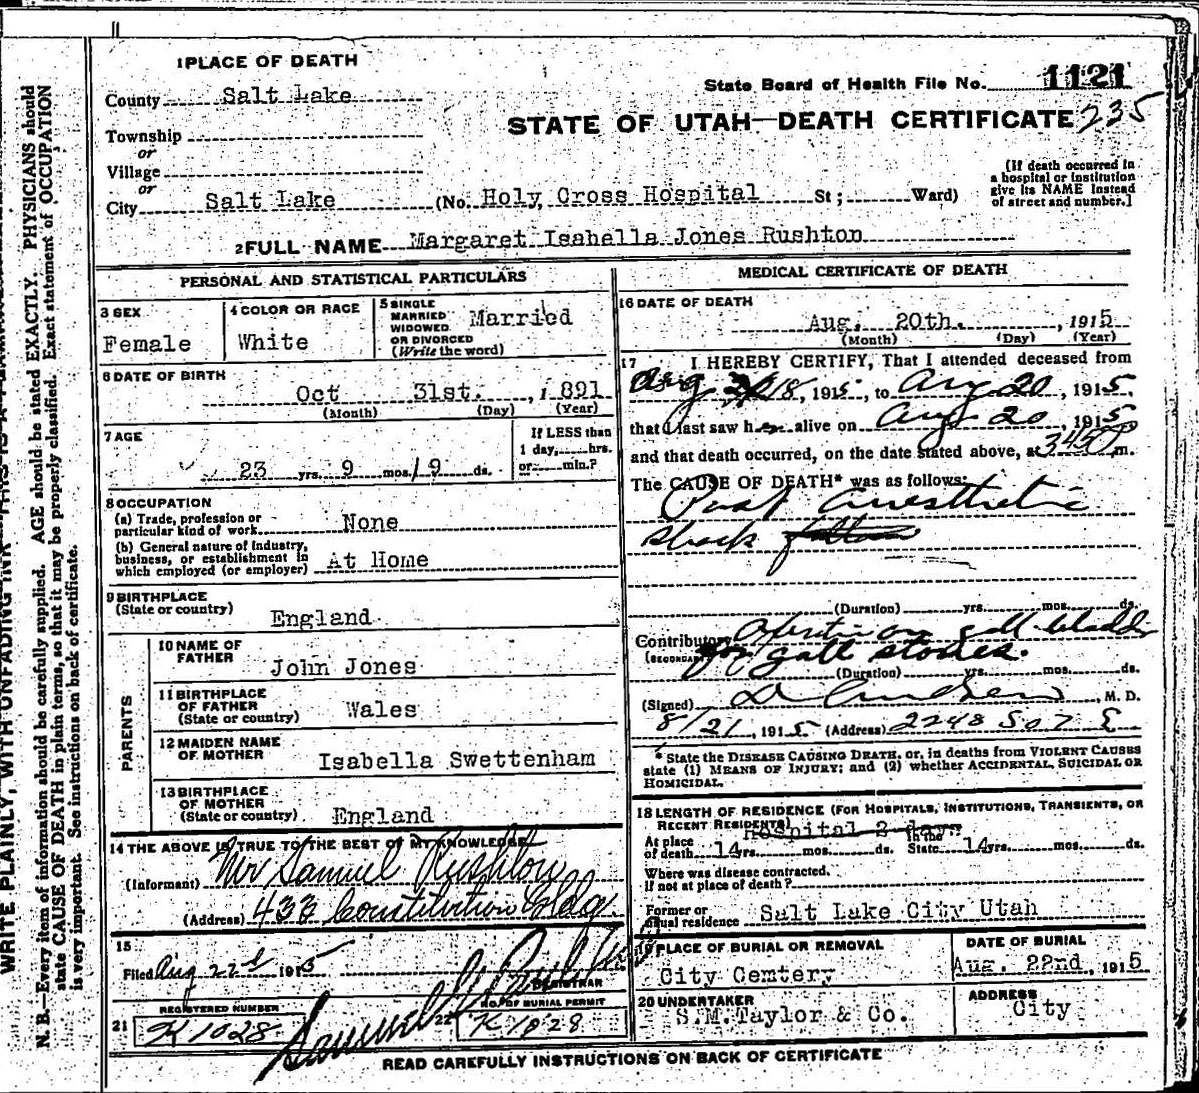 1 PLACE OF DEATH
County Salt Lake
Township
or
Village
or
City Salt Lake (No. Holy Cross Hospital St; Ward)
State Board of Health File No. 1121
STATE OF UTAH—DEATH CERTIFICATE 235
(If death occurred in
a hospital or institution
give its NAME instead
of street and number.]
2 FULL NAME Margaret Isabella Jones Rushton
PERSONAL AND STATISTICAL PARTICULARS
3 SEX
Female
4 COLOR OR RACE
White
5 SINGLE
MARRIED
WIDOWED
OR DIVORCED
(Write the word)
Married
6 DATE OF BIRTH
Oct 31st. , 1891
(Month) (Day) (Year)
7 AGE
23 yrs. 9 mos. 19 ds.
If LESS than
1 day, hrs.
or min.?
8 OCCUPATION
(a) Trade, profession or
particular kind of work None
(b) General nature of industry,
business, or establishment in
which employed (or employer) At Home
9 BIRTHPLACE
(State or country)
England
PARENTS
10 NAME OF
FATHER
John Jones
11 BIRTHPLACE
OF FATHER
(State or country)
Wales
12 MAIDEN NAME
OF MOTHER
Isabella Swettenham
13 BIRTHPLACE
OF MOTHER
(State or country)
England
14 THE ABOVE IS TRUE TO THE BEST OF MY KNOWLEDGE
(Informant) Mr Samuel Rushton
(Address) 433 Constitution Bldg.
15
Filed Aug 22d 1915
REGISTRAR
REGISTERED NUMBER
21 K 1028
Samuel G
NO. OF BURIAL PERMIT
22 K 1028
MEDICAL CERTIFICATE OF DEATH
16 DATE OF DEATH
Aug. 20th. , 1915
(Month) (Day) (Year)
17 I HEREBY CERTIFY, That I attended deceased from
Aug 18, 1915, to Aug 20, 1915,
that I last saw her alive on Aug 20, 1915
and that death occurred, on the date stated above, at 345 P m.
The CAUSE OF DEATH* was as follows:
Post Anesthetic
shock
(Duration) yrs. mos. ds.
Contributory Operation on gall bladder
(SECONDARY) for gall stones.
(Duration) yrs. mos. ds.
(Signed) M. D.
8/21, 1915 (Address) 2248 So 7 E
* State the DISEASE CAUSING DEATH, or, in deaths from VIOLENT CAUSES
state (1) MEANS OF INJURY; and (2) whether ACCIDENTAL, SUICIDAL OR
HOMICIDAL.
18 LENGTH OF RESIDENCE (FOR HOSPITALS, INSTITUTIONS, TRANSIENTS, OR
RECENT RESIDENTS) Hospital 2 days
At place
of death 14 yrs. mos. ds. In the
State 14 yrs. mos. ds.
Where was disease contracted,
if not at place of death?
Former or
usual residence Salt Lake City Utah
19 PLACE OF BURIAL OR REMOVAL
City Cemtery
DATE OF BURIAL
Aug. 22nd , 1915
20 UNDERTAKER
S.M.Taylor & Co.
ADDRESS
City
READ CAREFULLY INSTRUCTIONS ON BACK OF CERTIFICATE
WRITE PLAINLY, WITH UNFADING INK
N. B.—Every item of information should be carefully supplied. AGE should be stated EXACTLY. PHYSICIANS should
state CAUSE OF DEATH in plain terms, so that it may be properly classified. Exact statement of OCCUPATION
is very important. See instructions on back of certificate.